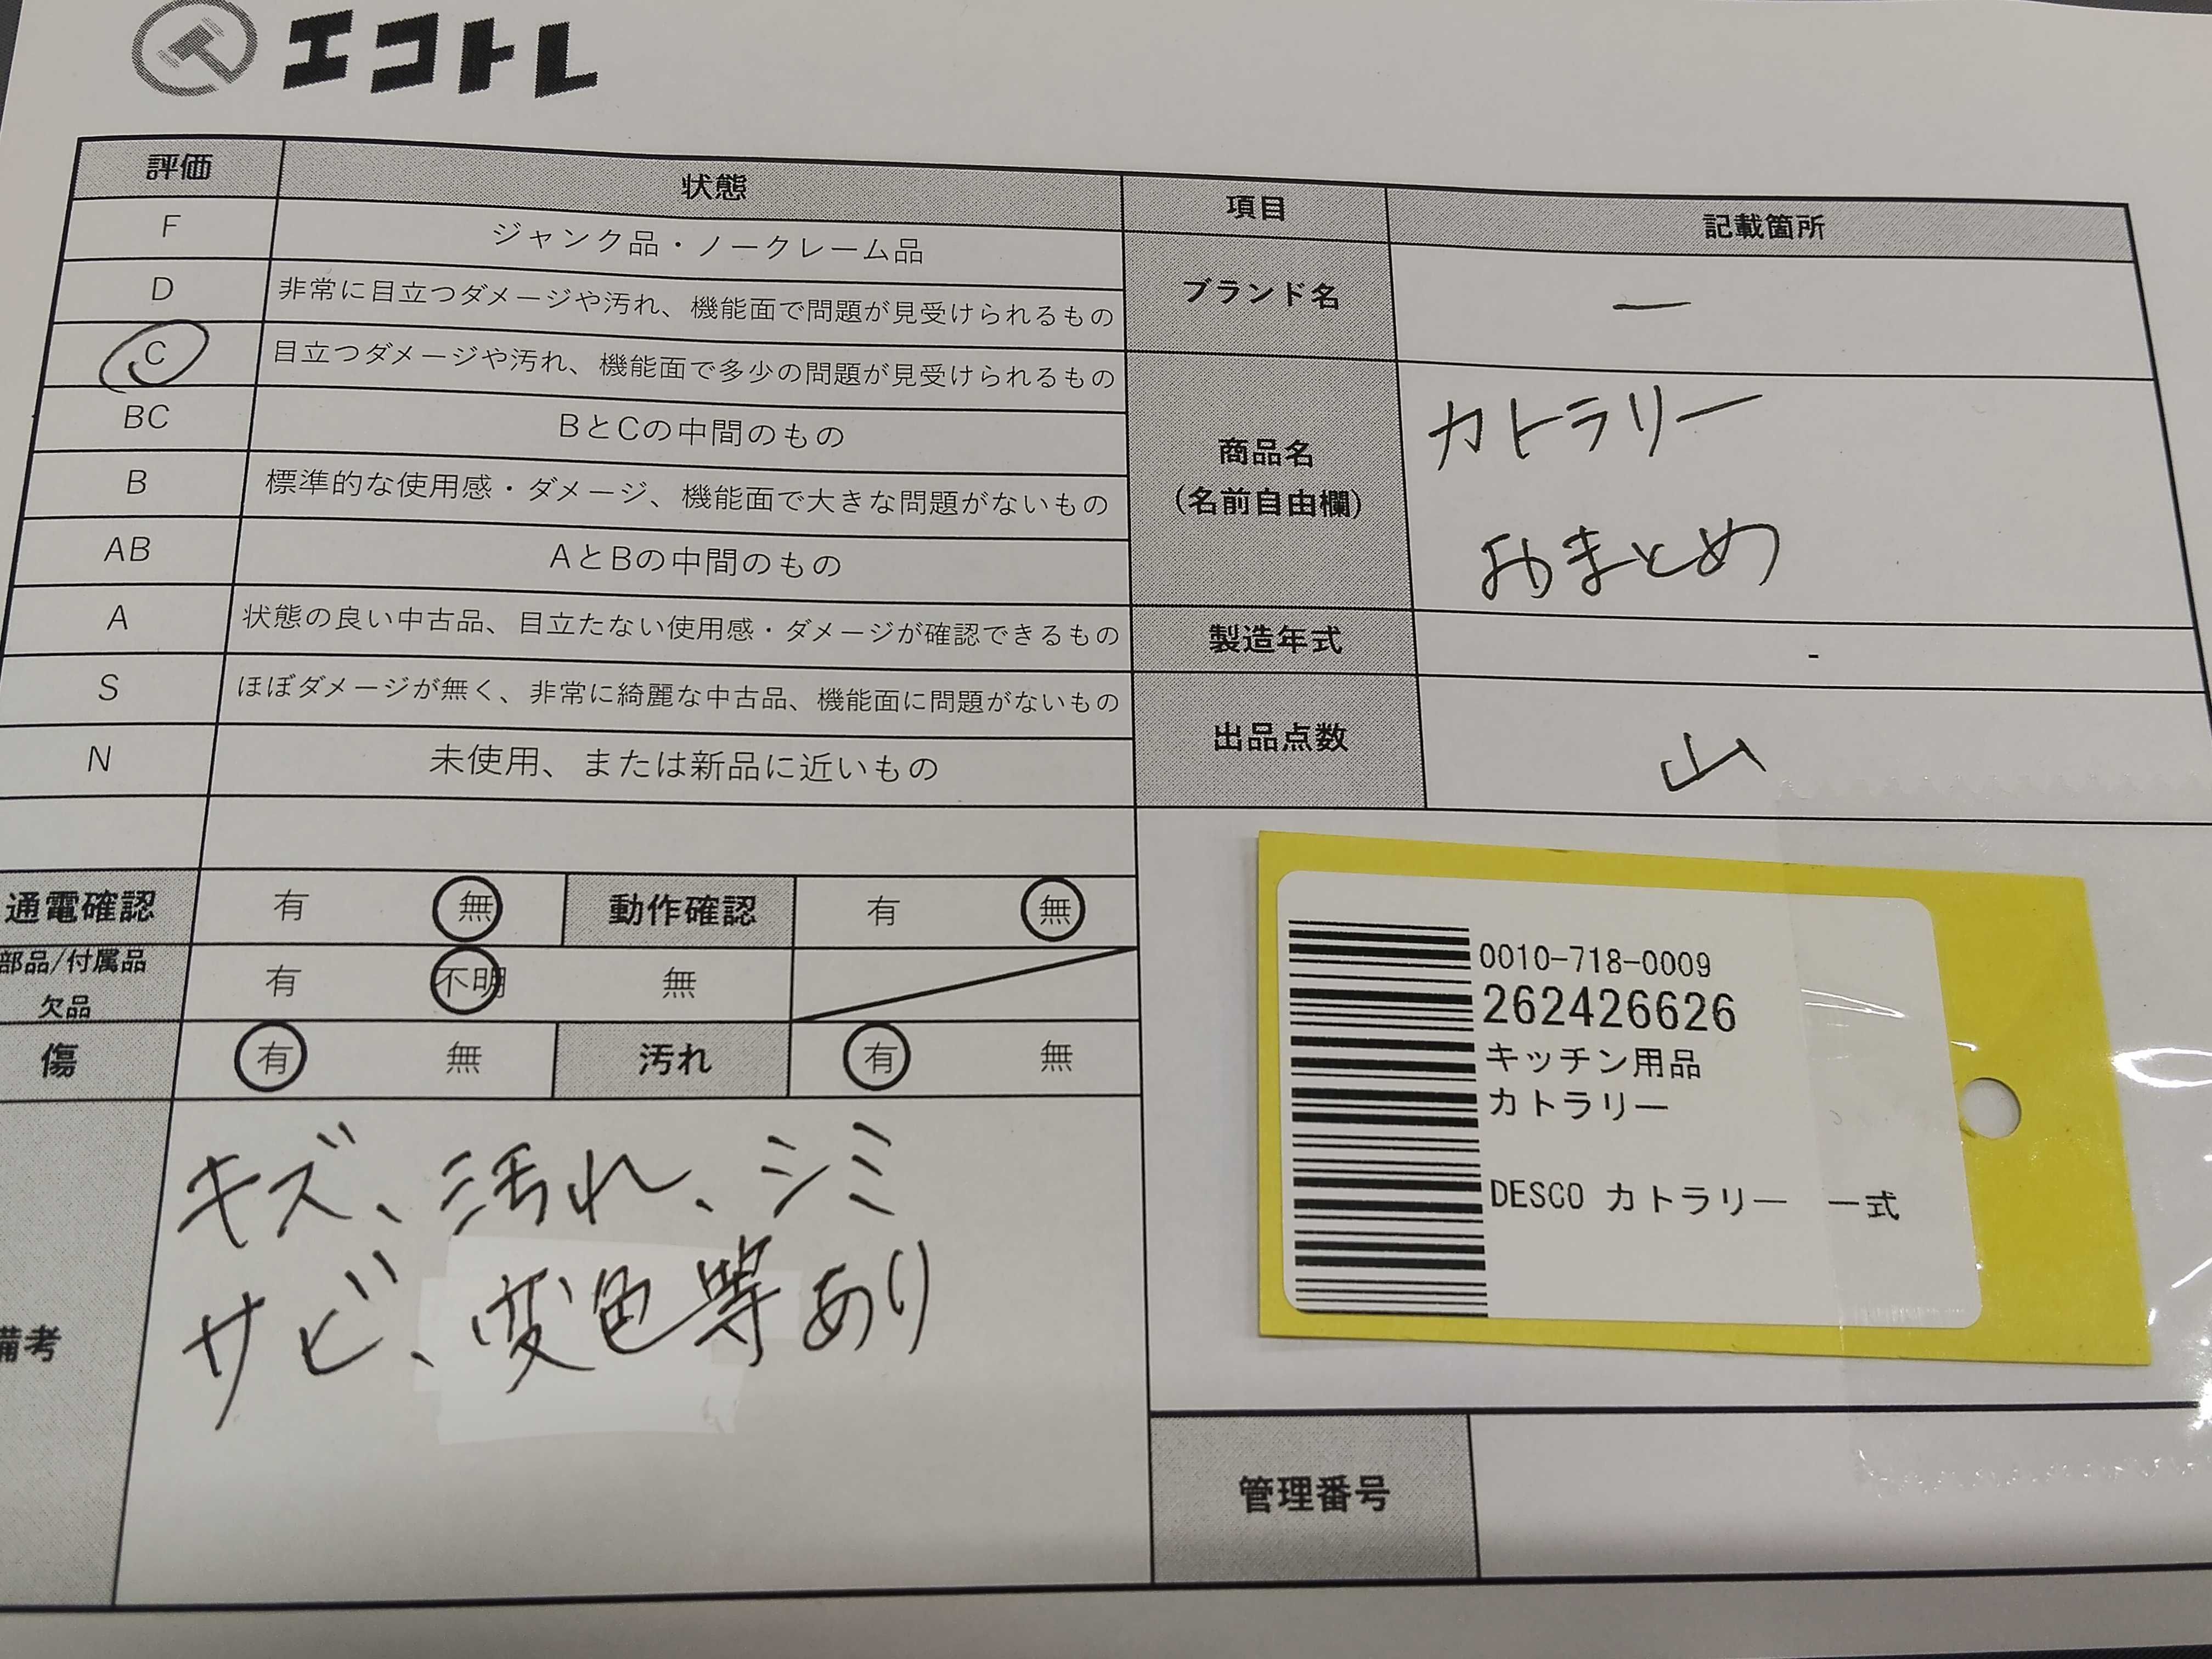 エコトレ
評価 状態 項目 記載箇所
F ジャンク品・ノークレーム品
D 非常に目立つダメージや汚れ、機能面で問題が見受けられるもの
C 目立つダメージや汚れ、機能面で多少の問題が見受けられるもの
BC BとCの中間のもの
B 標準的な使用感・ダメージ、機能面で大きな問題がないもの
AB AとBの中間のもの
A 状態の良い中古品、目立たない使用感・ダメージが確認できるもの
S ほぼダメージが無く、非常に綺麗な中古品、機能面に問題がないもの
N 未使用、または新品に近いもの
ブランド名 ー
商品名
(名前自由欄)
カトラリー
おまとめ
製造年式 -
出品点数 山
通電確認 有 無 動作確認 有 無
部品/付属品
欠品
有 不明 無
傷 有 無 汚れ 有 無
備考
キズ、汚れ、シミ
サビ、変色等あり
0010-718-0009
262426626
キッチン用品
カトラリー
DESCO カトラリー 一式
管理番号